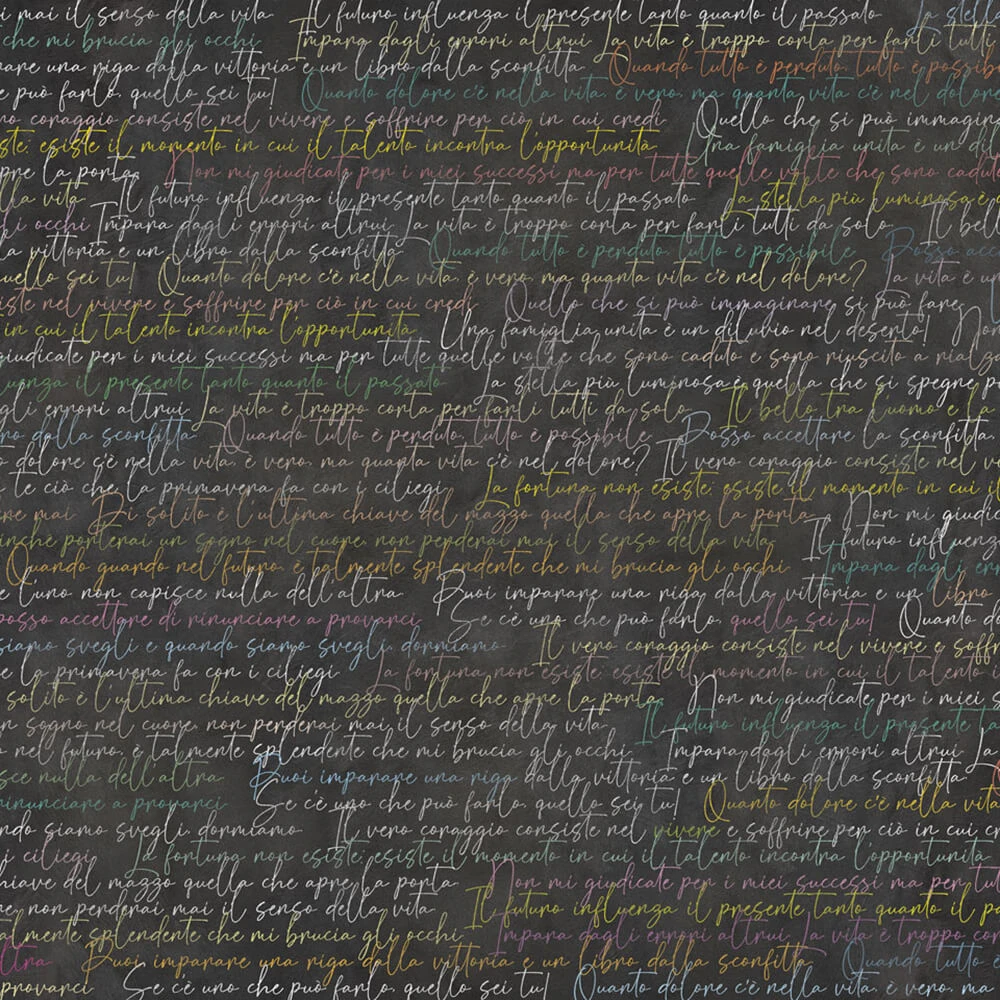 i mai il senso della vita Il futuro influenza il presente tanto quanto il passato La stell
che mi brucia gli occhi Impara dagli errori altrui La vita è troppo corta per farli tutti
rare una riga dalla vittoria e un libro dalla sconfitta Quando tutto è perduto, tutto è possib
e può farlo, quello sei tu! Quanto dolore c'è nella vita, è vero, ma quanta vita c'è nel dolore
ro coraggio consiste nel vivere e soffrire per ciò in cui credi Quello che si può immagin
ste, esiste il momento in cui il talento incontra l'opportunità Una famiglia unita è un dil
pre la porta Non mi giudicate per i miei successi ma per tutte quelle volte che sono cadut
lla vita Il futuro influenza il presente tanto quanto il passato La stella più luminosa è
li occhi Impara dagli errori altrui La vita è troppo corta per farli tutti da solo Il bell
la vittoria e un libro dalla sconfitta Quando tutto è perduto, tutto è possibile Posso acc
uello sei tu! Quanto dolore c'è nella vita, è vero, ma quanta vita c'è nel dolore? La vita è u
iste nel vivere e soffrire per ciò in cui credi Quello che si può immaginare si può fare
in cui il talento incontra l'opportunità Una famiglia unita è un diluvio nel deserto! Non
giudicate per i miei successi ma per tutte quelle volte che sono caduto e sono riuscito a rialz
uenza il presente tanto quanto il passato La stella più luminosa è quella che si spegne p
gli errori altrui La vita è troppo corta per farli tutti da solo Il bello tra l'uomo e la
ro dalla sconfitta Quando tutto è perduto, tutto è possibile Posso accettare la sconfitta,
o dolore c'è nella vita, è vero, ma quanta vita c'è nel dolore? Il vero coraggio consiste nel v
te ciò che la primavera fa con i ciliegi La fortuna non esiste, esiste il momento in cui il
re mai Di solito è l'ultima chiave del mazzo quella che apre la porta Non mi giudic
inchè porterai un sogno nel cuore, non perderai mai il senso della vita Il futuro influenz
Quando guando nel futuro, è talmente splendente che mi brucia gli occhi Impara dagli err
e l'uno non capisce nulla dell'altra Puoi imparare una riga dalla vittoria e un libro
posso accettare di rinunciare a provarci Se c'è uno che può farlo, quello sei tu! Quanto do
siamo svegli e quando siamo svegli, dormiamo Il vero coraggio consiste nel vivere e soffr
e la primavera fa con i ciliegi La fortuna non esiste, esiste il momento in cui il talento
solito è l'ultima chiave del mazzo quella che apre la porta Non mi giudicate per i miei s
un sogno nel cuore, non perderai mai il senso della vita Il futuro influenza il presente ta
o nel futuro, è talmente splendente che mi brucia gli occhi Impara dagli errori altrui La
sce nulla dell'altra Puoi imparare una riga dalla vittoria e un libro dalla sconfitta
rinunciare a provarci Se c'è uno che può farlo, quello sei tu! Quanto dolore c'è nella vita
ndo siamo svegli, dormiamo Il vero coraggio consiste nel vivere e soffrire per ciò in cui cr
i ciliegi La fortuna non esiste, esiste il momento in cui il talento incontra l'opportunità
hiave del mazzo quella che apre la porta Non mi giudicate per i miei successi ma per tut
re, non perderai mai il senso della vita Il futuro influenza il presente tanto quanto il p
almente splendente che mi brucia gli occhi Impara dagli errori altrui, la vita è troppo cor
ltra Puoi imparare una riga dalla vittoria e un libro dalla sconfitta Quando tutto è
provarci Se c'è uno che può farlo, quello sei tu! Quanto dolore c'è nella vita, è vero, ma